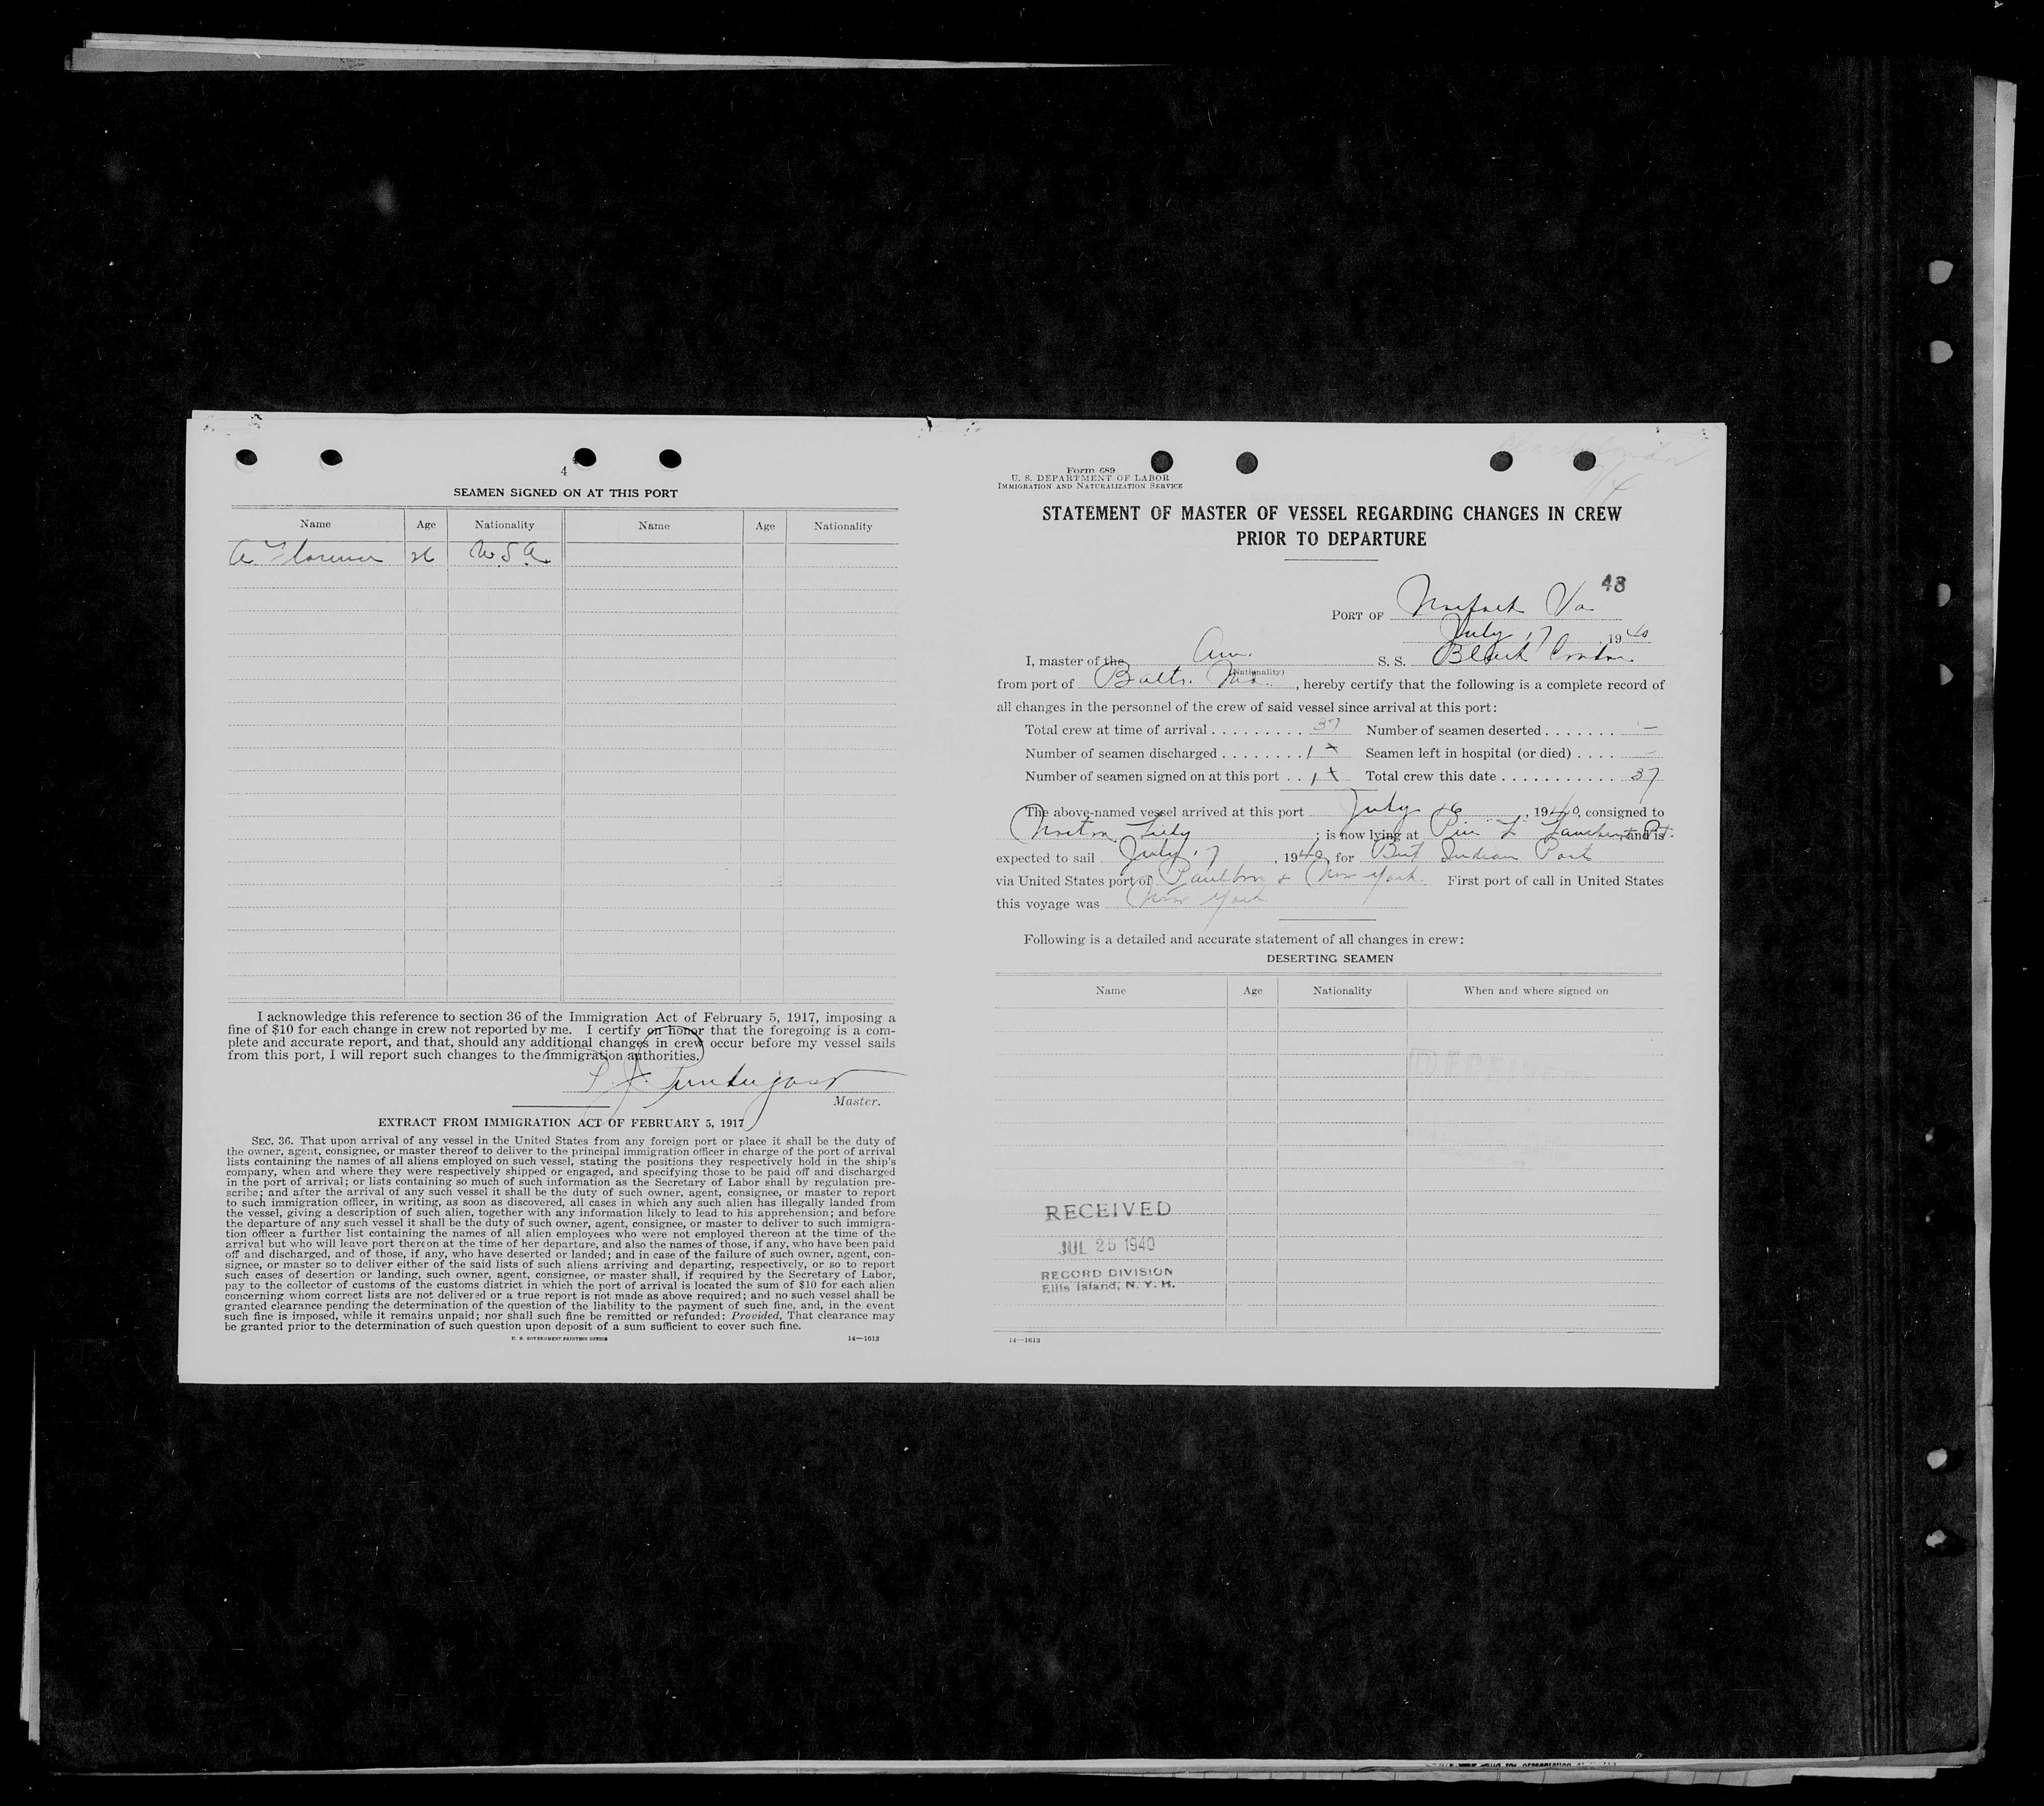 4
SEAMEN SIGNED ON AT THIS PORT
Name Age Nationality Name Age Nationality
A Florence 26 U.S.A.
I acknowledge this reference to section 36 of the Immigration Act of February 5, 1917, imposing a
fine of $10 for each change in crew not reported by me. I certify on honor that the foregoing is a com-
plete and accurate report, and that, should any additional changes in crew occur before my vessel sails
from this port, I will report such changes to the immigration authorities.
Master.
EXTRACT FROM IMMIGRATION ACT OF FEBRUARY 5, 1917
SEC. 36. That upon arrival of any vessel in the United States from any foreign port or place it shall be the duty of
the owner, agent, consignee, or master thereof to deliver to the principal immigration officer in charge of the port of arrival
lists containing the names of all aliens employed on such vessel, stating the positions they respectively hold in the ship's
company, when and where they were respectively shipped or engaged, and specifying those to be paid off and discharged
in the port of arrival; or lists containing so much of such information as the Secretary of Labor shall by regulation pre-
scribe; and after the arrival of any such vessel it shall be the duty of such owner, agent, consignee, or master to report
to such immigration officer, in writing, as soon as discovered, all cases in which any such alien has illegally landed from
the vessel, giving a description of such alien, together with any information likely to lead to his apprehension; and before
the departure of any such vessel it shall be the duty of such owner, agent, consignee, or master to deliver to such immigra-
tion officer a further list containing the names of all alien employees who were not employed thereon at the time of the
arrival but who will leave port thereon at the time of her departure, and also the names of those, if any, who have been paid
off and discharged, and of those, if any, who have deserted or landed; and in case of the failure of such owner, agent, con-
signee, or master so to deliver either of the said lists of such aliens arriving and departing, respectively, or so to report
such cases of desertion or landing, such owner, agent, consignee, or master shall, if required by the Secretary of Labor,
pay to the collector of customs of the customs district in which the port of arrival is located the sum of $10 for each alien
concerning whom correct lists are not delivered or a true report is not made as above required; and no such vessel shall be
granted clearance pending the determination of the question of the liability to the payment of such fine, and, in the event
such fine is imposed, while it remains unpaid; nor shall such fine be remitted or refunded: Provided, That clearance may
be granted prior to the determination of such question upon deposit of a sum sufficient to cover such fine.
U. S. GOVERNMENT PRINTING OFFICE 14—1613
Form 689
U. S. DEPARTMENT OF LABOR
IMMIGRATION AND NATURALIZATION SERVICE
STATEMENT OF MASTER OF VESSEL REGARDING CHANGES IN CREW
PRIOR TO DEPARTURE
43
PORT OF Norfolk Va
July 17, 1940
I, master of the Am. S. S. Black Condor
(Nationality)
from port of Balto. Md., hereby certify that the following is a complete record of
all changes in the personnel of the crew of said vessel since arrival at this port:
Total crew at time of arrival 37 Number of seamen deserted —
Number of seamen discharged 1 x Seamen left in hospital (or died) —
Number of seamen signed on at this port 1 x Total crew this date 37
The above-named vessel arrived at this port July 16, 1940, consigned to
Norton Lilly; is now lying at Pier L Lamberts Pt., and is
expected to sail July 17, 1940, for Brit Indian Ports
via United States port of Paulsboro & New York. First port of call in United States
this voyage was New York
Following is a detailed and accurate statement of all changes in crew:
DESERTING SEAMEN
Name Age Nationality When and where signed on
RECEIVED
JUL 25 1940
RECORD DIVISION
Ellis Island, N. Y. H.
14—1613